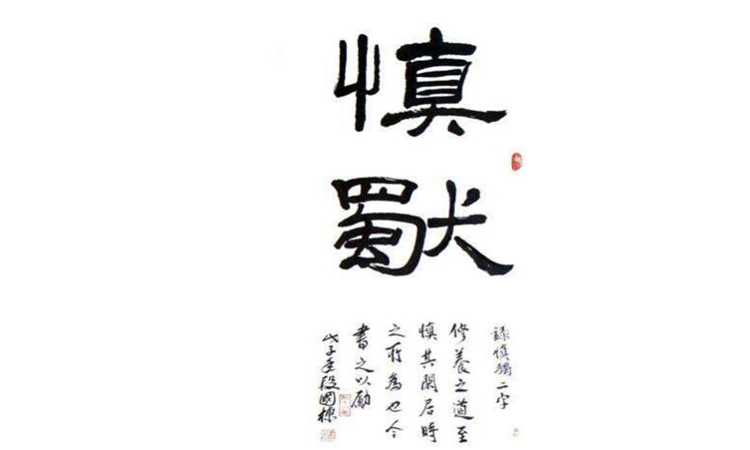 慎
獨
錄慎獨二字
修養之道至
慎其閑居時
之所為也今
書之以勵
戊子年段國